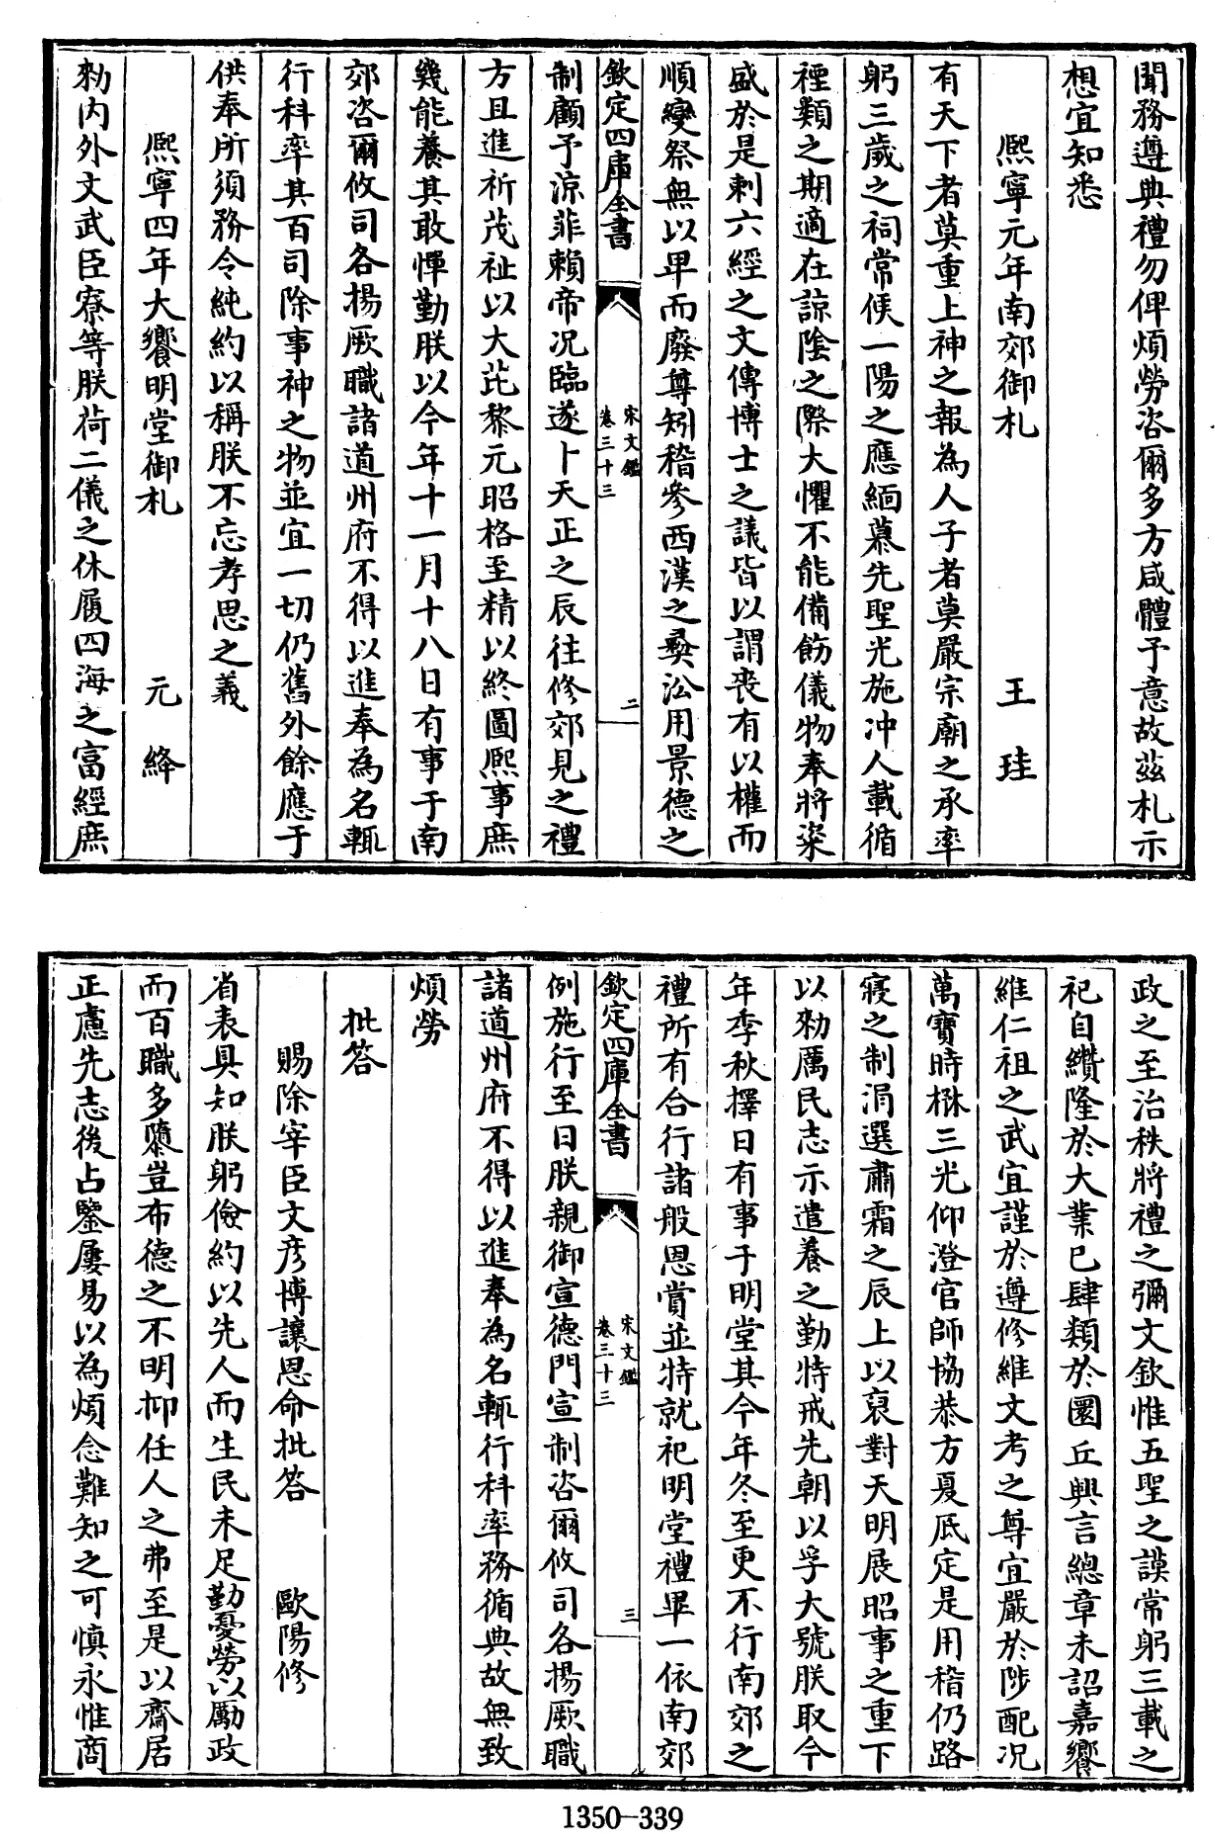 聞務遵典禮勿俾煩勞咨爾多方咸體予意故茲札示
想宜知悉
熙寧元年南郊御札 王珪
有天下者莫重上神之報為人子者莫嚴宗廟之承率
躬三歲之祠常俟一陽之應緬慕先聖光施冲人載循
禋類之期適在諒隂之際大懼不能備飭儀物奉將粢
盛於是刺六經之文傳博士之議皆以謂喪有以權而
順變祭無以卑而廢尊矧稽參西漢之彞㳂用景德之
欽定四庫全書
宋文鑑
卷三十三
二
制顧予涼菲賴帝况臨遂卜天正之辰往修郊見之禮
方且進祈茂祉以大庇黎元昭格至精以終圖熙事庶
幾能養其敢憚勤朕以今年十一月十八日有事于南
郊咨爾攸司各揚厥職諸道州府不得以進奉為名輒
行科率其百司除事神之物並宜一切仍舊外餘應于
供奉所須務令純約以稱朕不忘孝思之義
熙寧四年大饗明堂御札 元絳
勑内外文武臣寮等朕荷二儀之休履四海之富經庶
政之至治秩將禮之彌文欽惟五聖之謨常躬三載之
祀自纘隆於大業已肆類於圜丘興言總章未詔嘉饗
維仁祖之武宜謹於遵修維文考之尊宜嚴於陟配况
萬寶時楙三光仰澄官師協恭方夏厎定是用稽仍路
寢之制涓選肅霜之辰上以裒對天明展昭事之重下
以勑厲民志示遣養之勤特戒先朝以孚大號朕取今
年季秋擇日有事于明堂其今年冬至更不行南郊之
禮所有合行諸般恩賞並特就祀明堂禮畢一依南郊
欽定四庫全書
宋文鑑
卷三十三
三
例施行至日朕親御宣德門宣制咨爾攸司各揚厥職
諸道州府不得以進奉為名輒行科率務循典故無致
煩勞
批答
賜除宰臣文彦博讓恩命批答 歐陽修
省表具知朕躬儉約以先人而生民未足勤憂勞以勵政
而百職多隳豈布德之不明抑任人之弗至是以齋居
正慮先志後占鑒屢易以為煩念難知之可慎永惟商
1350-339